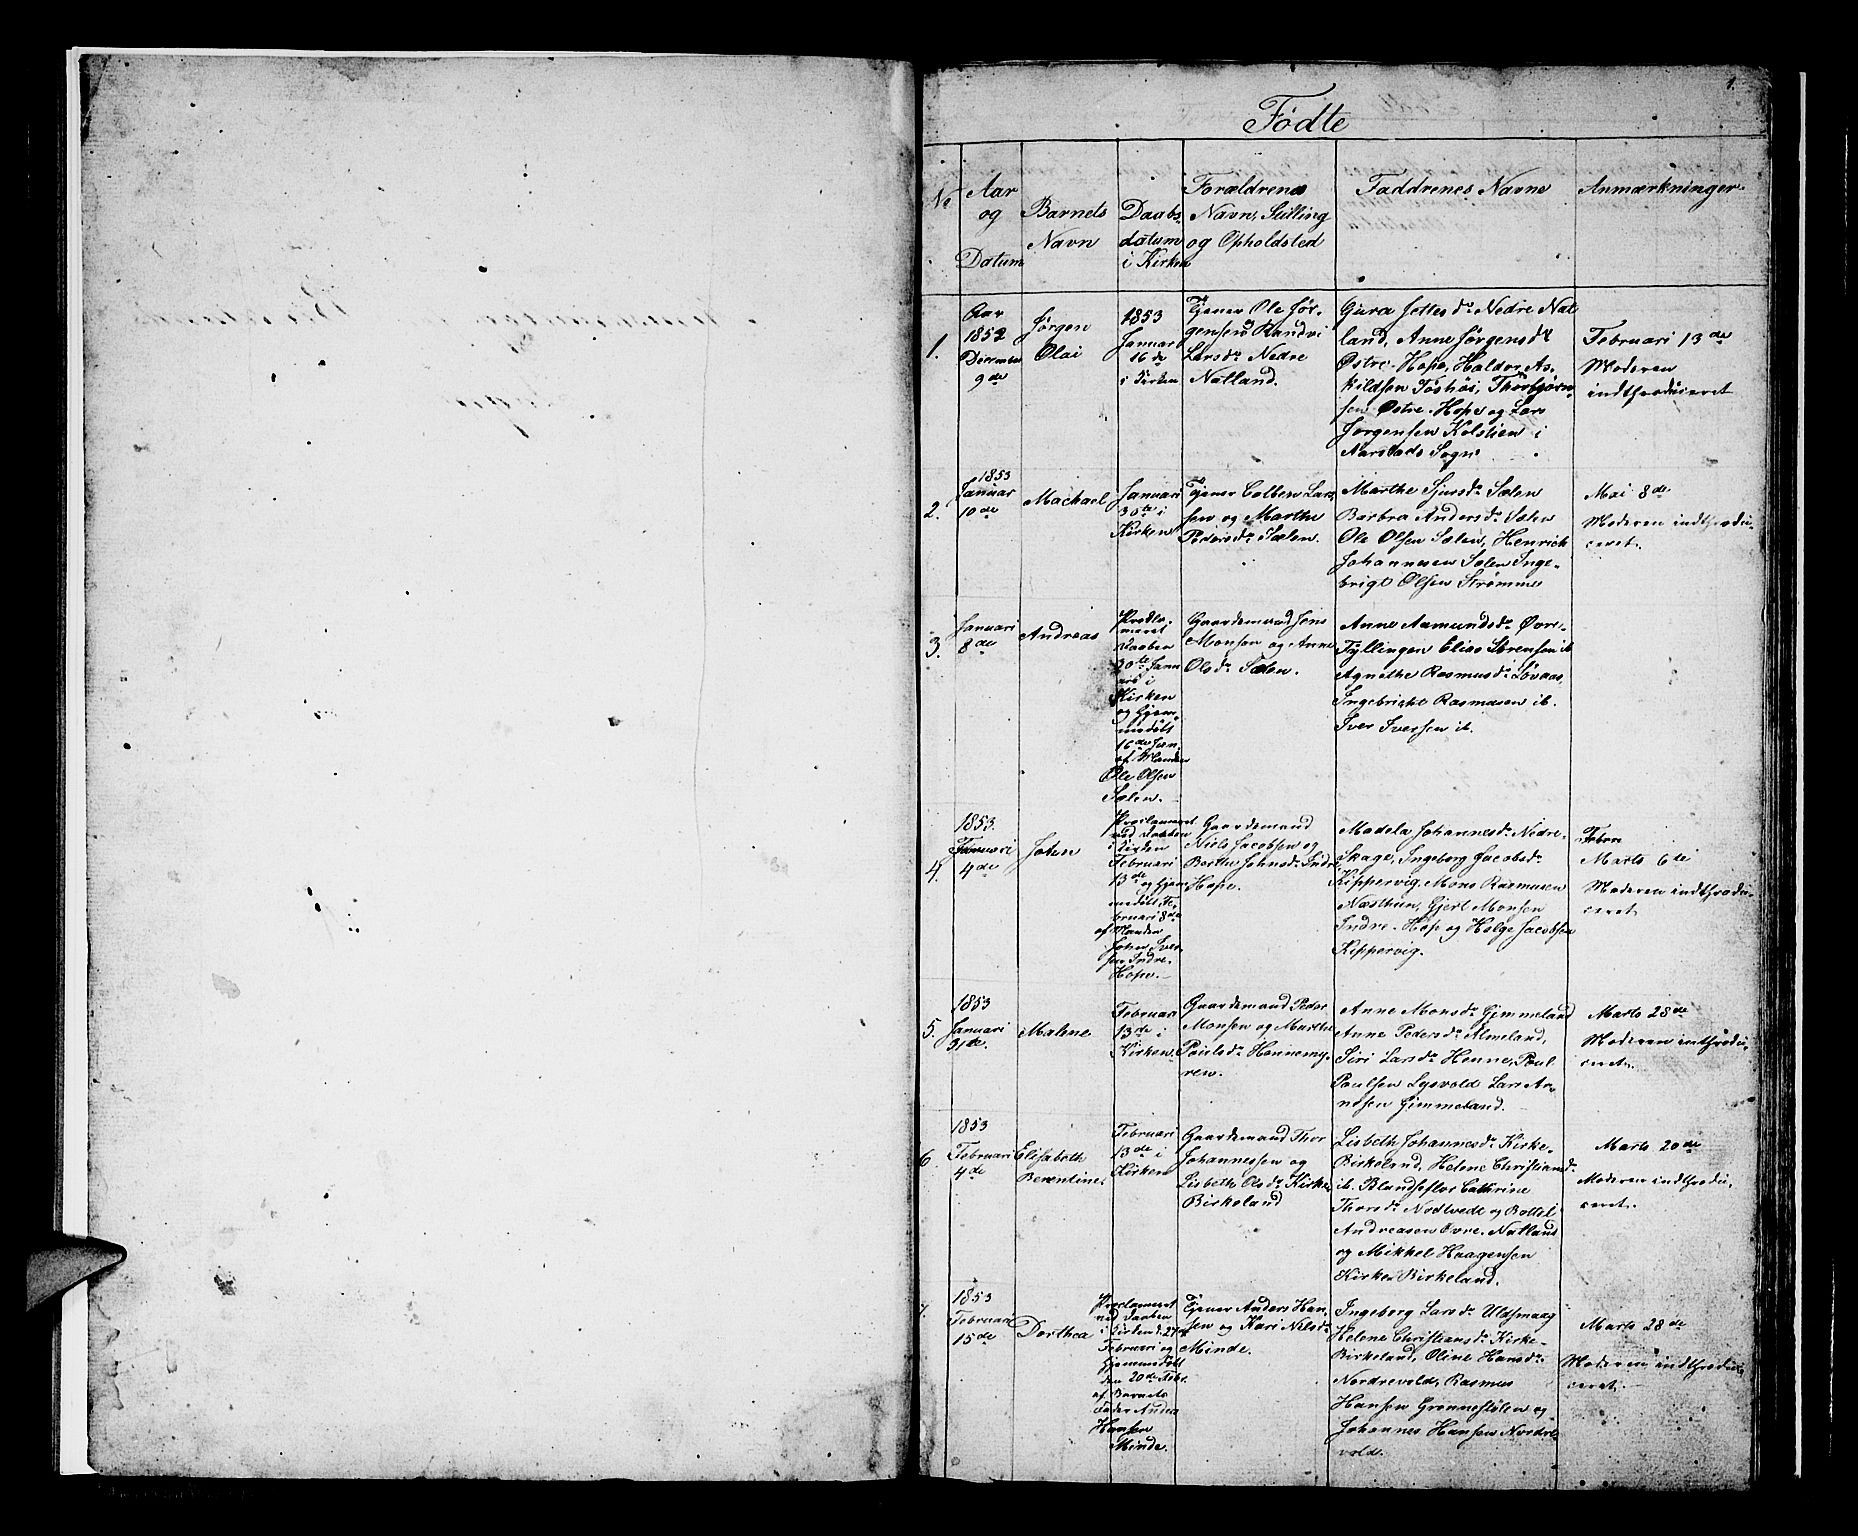 1.
Fødte
No
Aar
og
Datum
Barnets
Navn
Daabs-
datum
i Kirken
Forældrenes
Navn, Stilling
og Opholdsted
Faddrenes Navne
Anmærkninger.
1.
Aar
1852
December
9de
Jørgen
Olai
1853
Januar
16de
i Kirken
Tjener Ole Jør-
gensen Randvi
Larsdr Nedre
Natland.
Gura Jettesdr Nedre Nat
land, Anne Jørgensdr
Østre-Hope, Haldor As-
kildsen Thorbjørn-
sen Østre-Hope og Lars
Jørgensen Kolstien i
Narstads Sogn
Februari 13de
Moderen
indthroduceret
2.
1853
Januar
10de
Machael
Januari
30te i
Kirken
Tjener Colben Lar-
sen og Marthe
Pedersdr Sælen.
Marthe Sjursdr Sælen
Barbra Andersdr Sælen
Ole Olsen Sælen, Henrick
Johannesen Sælen Inge-
brigt Olsen Strømme
Mai 8de
Moderen indthrodu-
ceret.
3.
Januari
8de
Andreas
Procla-
meret
Daaben
30te Janu
ari i
Kirken
og Hjem-
medøbt
16de Jan.
af Manden
Ole Olsen
Sælen.
Gaardemand Jens
Monsen og Anne
Olsdr Sælen.
Anne Aamundsdr Øvre-
Fyllingen Elias Sørensen ib
Agnethe Rasmusdr Løvaas,
Ingebricht Rasmusen ib.
Iver Iversen ib.
4.
1853.
Januari
4de
Johen
Proclameret
ved Daaben
i Kirken
Februari
13de og Hjem-
medøbt Fe-
bruari 8de
af Manden
John Iver-
sen Indre-
Hope.
Gaardemand
Niels Jacobsen og
Berthe Johnsdr Indre
Hope.
Madela Johannesdr Nedre-
Skage, Ingeborg Jacobsdr
Kippervig, Mons Rasmusen
Næsthun, Gjert Monsen
Indre-Hop og Helge Jacobsen
Kippervig.
Febru
Marts 6te
Moderen indthrodu-
ceret
5.
1853
Januari
31de.
Malene
Februari
13de i
Kirken.
Gaardemand Peder
Monsen og Marthe
Poulsdr Hannemy-
ren.
Anne Monsdr Gjimmeland
Anne Pedersdr Almeland,
Siri Larsdr Henne, Poul
Paulsen Lysvold Lars Ar-
nesen Gimmeland.
Marts 28de
Moderen indthrodu-
ceret.
6
1853
Februari
4de
Elisabeth
Berentine.
Februari
13de i
Kirken
Gaardemand Thor
Johannessen og
Lisbeth Olsdr Kirke
Birkeland
Lisbeth Johannesdr Kirke-
Birkeland, Helene Christiansdr
ib. Blandseflor Cathrine
Thorsdr Nødtvede og Bottel
Andreasen Øvre-Natland
og Mikkel Haagensen
Kirke Birkeland.
Marts 20de
Moderen indthrodu-
ceret.
7.
1853
Februari
15de
Dorthea
Proclameret
ved Daaben
i Kirken d. 27de
Februari og
Hjemmedøbt
den 20de Febr.
af Barnets
Fader Anders
Hansen
Minde.
Tjener Anders Han-
sen og Kari Nilsdr
Minde.
Ingeborg Larsdr Uldsmaag
Helene Christiansdr Kirke-
Birkeland, Oline Hansdr
Nordrevold, Rasmus
Hansen Grønnestølen og
Johannes Hansen Nordre-
vold.
Marts 28de
Moderen indthrodu-
ceret.